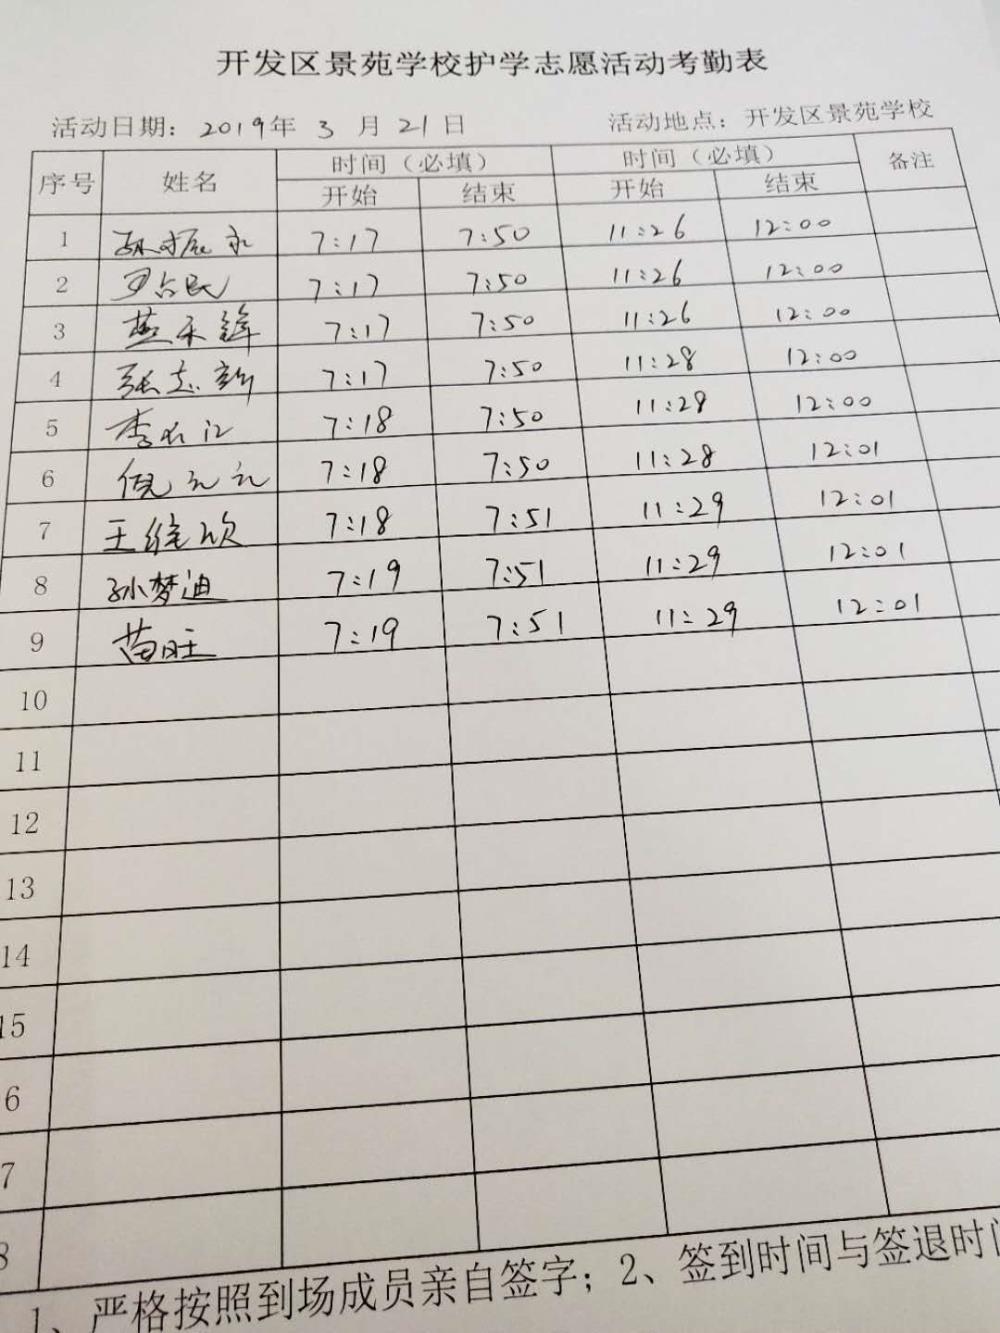 开发区景苑学校护学志愿活动考勤表
活动日期: 2019年 3 月 21 日 活动地点: 开发区景苑学校
序号 姓名 时间（必填） 时间（必填） 备注
开始 结束 开始 结束
1 孙振永 7:17 7:50 11:26 12:00
2 罗占民 7:17 7:50 11:26 12:00
3 7:17 7:50 11:26 12:00
4 张志新 7:17 7:50 11:28 12:00
5 李长江 7:18 7:50 11:28 12:00
6 倪元元 7:18 7:50 11:28 12:01
7 王维欣 7:18 7:51 11:29 12:01
8 孙梦迪 7:19 7:51 11:29 12:01
9 苗旺 7:19 7:51 11:29 12:01
10
11
12
13
14
15
6
7
8
1、严格按照到场成员亲自签字；2、签到时间与签退时间